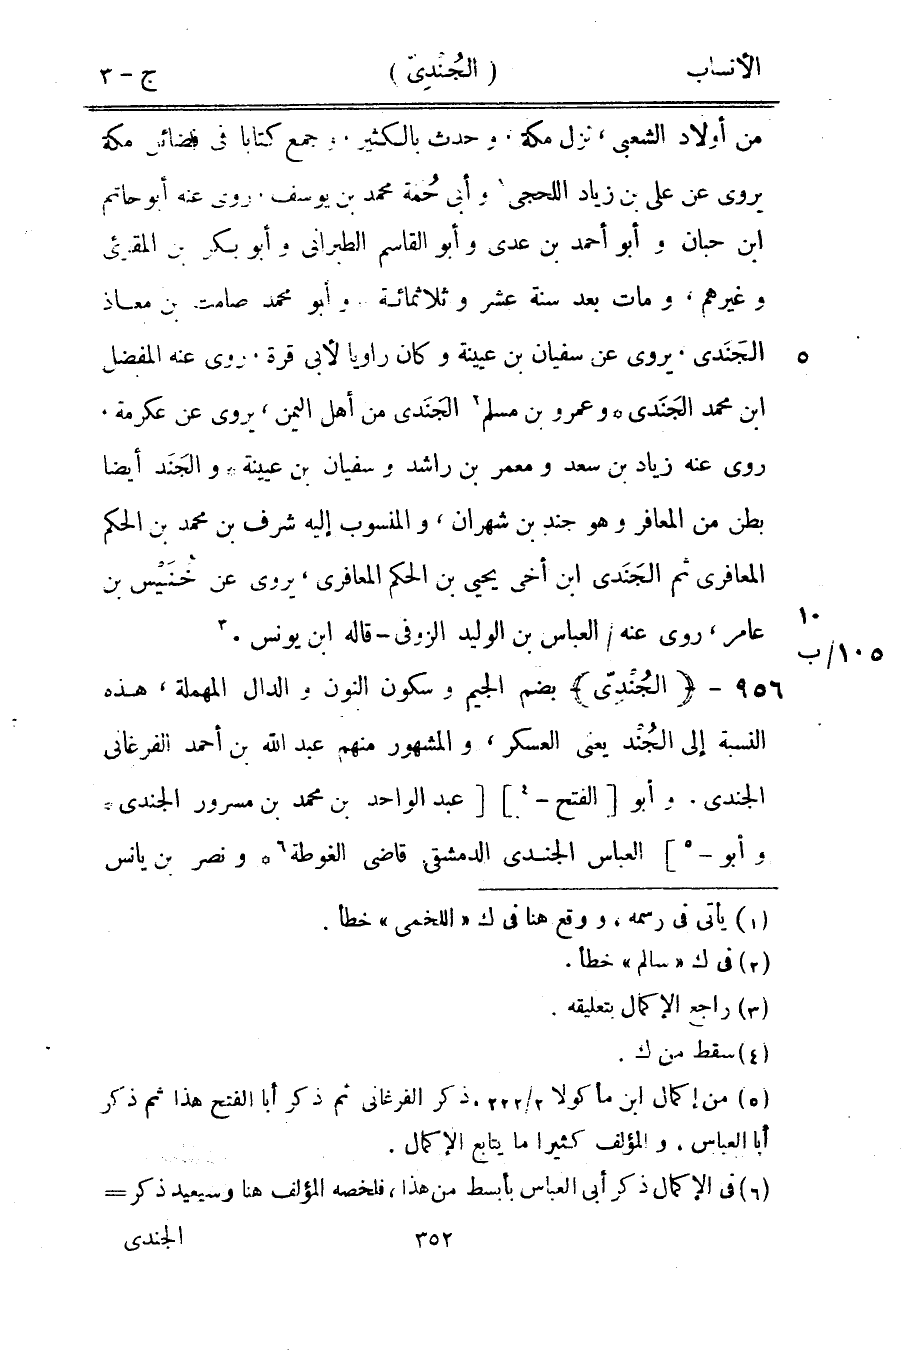 الأنساب ( الجُنْدِىّ ) ج - ٣
من أولاد الشعبى ، نزل مكة ، و حدث بالكثير ، و جمع كتابا فى فضائل مكة
يروى عن على بن زياد اللحجى ١ و أبى حُمَة محمد بن يوسف ، روى عنه أبو حاتم
ابن حبان و أبو أحمد بن عدى و أبو القاسم الطبرانى و أبو بكر بن المقرئى
و غيرهم ، و مات بعد سنة عشر و ثلاثمائة . و أبو محمد صامت بن معاذ
الجَنَدى ، يروى عن سفيان بن عيينة و كان راويا لأبى قرة ، روى عنه المفضل ٥
ابن محمد الجَنَدى * و عمرو بن مسلم ٢ الجَنَدى من أهل اليمن ، يروى عن عكرمة ،
روى عنه زياد بن سعد و معمر بن راشد و سفيان بن عيينة * و الجَنَد أيضا
بطن من المعافر و هو جند بن شهران ، و المنسوب إليه شرف بن محمد بن الحكم
المعافرى ثم الجَنَدى ابن أخى يحيى بن الحكم المعافرى ، يروى عن خُنَيْس بن
عامر ، روى عنه / العباس بن الوليد الزوفى - قاله ابن يونس ٣ . ١٠ ١٠٥/ب
٩٥٦ - ﴿ الجُنْدِىّ ﴾ بضم الجيم و سكون النون و الدال المهملة ، هذه
النسبة إلى الجُنْد يعنى العسكر ، و المشهور منهم عبد الله بن أحمد الفرغانى
الجندى . و أبو [ الفتح - ٤ ] [ عبد الواحد بن محمد بن مسرور الجندى *
و أبو - ٥ ] العباس الجندى الدمشقى قاضى الغوطة ٦ * و نصر بن يانس
(١) يأتى فى رسمه ، و وقع هنا فى ك « اللخمى » خطأ .
(٢) فى ك « سالم » خطأ .
(٣) راجع الإكمال بتعليقه .
(٤) سقط من ك .
(٥) من إكمال ابن ماكولا ٢/٢٢٢ ، ذكر الفرغانى ثم ذكر أبا الفتح هذا ثم ذكر
أبا العباس ، و المؤلف كثيرا ما يتابع الإكمال .
(٦) فى الإكمال ذكر أبى العباس بأبسط من هذا ، فلخصه المؤلف هنا و سيعيد ذكر =
٣٥٢ الجندى